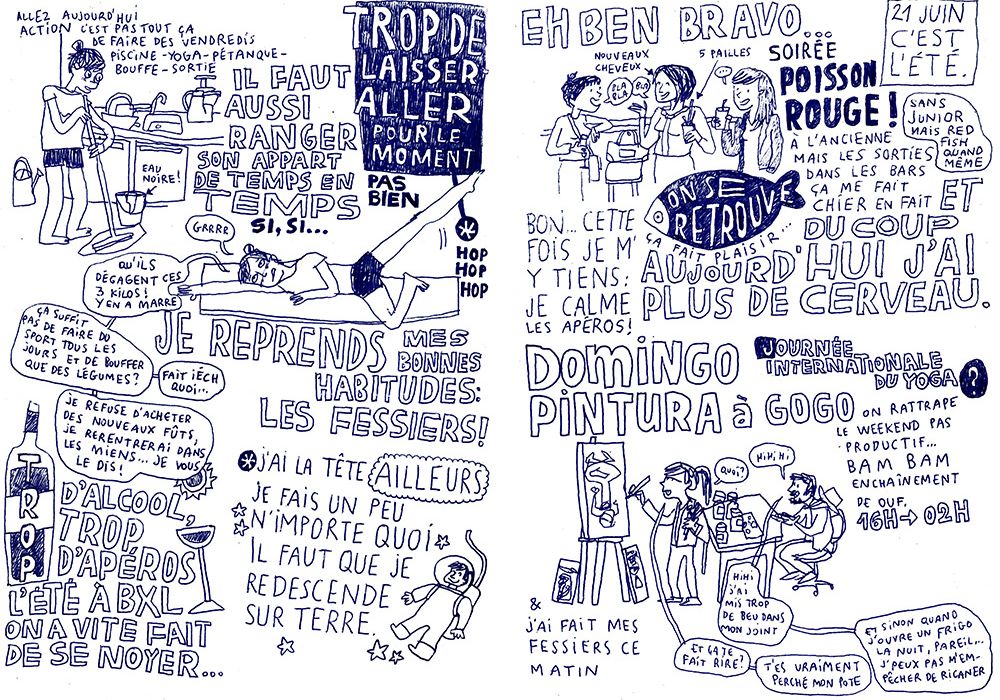 ALLEZ AUJOURD'HUI
ACTION C'EST PAS TOUT ÇA
DE FAIRE DES VENDREDIS
PISCINE - YOGA - PÉTANQUE -
BOUFFE - SORTIE
IL FAUT
AUSSI
RANGER
SON APPART
DE TEMPS EN
TEMPS
SI, SI...
EAU
NOIRE!
TROP DE
LAISSER
ALLER
POUR LE
MOMENT
PAS
BIEN
HOP
HOP
HOP
GRRRR
QU'ILS
DÉGAGENT CES
3 KILOS!
Y EN A MARRE
JE REPRENDS MES
BONNES
HABITUDES:
LES FESSIERS!
ÇA SUFFIT
PAS DE FAIRE DU
SPORT TOUS LES
JOURS ET DE BOUFFER
QUE DES LÉGUMES?
FAIT iÉCH
QUOI...
JE REFUSE D'ACHETER
DES NOUVEAUX FÛTS,
JE RERENTRERAI DANS
LES MIENS... JE VOUS
LE DIS!
TROP
D'ALCOOL,
TROP
D'APÉROS
L'ÉTÉ À BXL
ON A VITE FAIT
DE SE NOYER...
J'AI LA TÊTE AILLEURS
JE FAIS UN PEU
N'IMPORTE QUOI
IL FAUT QUE JE
REDESCENDE
SUR TERRE.
EH BEN BRAVO...
21 JUIN
C'EST
L'ÉTÉ.
NOUVEAUX
CHEVEUX
5 PAILLES
BLA
BLA
BLA
...
SOIRÉE
POISSON
ROUGE!
À L'ANCIENNE
MAIS LES SORTIES
DANS LES BARS
ÇA ME FAIT
CHIER EN FAIT ET
SANS
JUNIOR
MAIS RED
FISH
QUAND
MÊME
ON SE
RETROUVE
ÇA FAIT PLAISIR...
DU COUP
AUJOURD'HUI J'AI
PLUS DE CERVEAU.
BON... CETTE
FOIS JE M'
Y TIENS:
JE CALME
LES APÉROS!
DOMINGO
PINTURA à GOGO
JOURNÉE
INTERNATIONALE
DU YOGA ?
ON RATTRAPE
LE WEEKEND PAS
PRODUCTIF...
BAM BAM
ENCHAÎNEMENT
DE OUF.
16H → 02H
QUOI?
HiHiHi
HiHi
J'AI
MIS TROP
DE BEU DANS
MON JOINT
ET ÇA TE
FAIT RIRE?
T'ES VRAIMENT
PERCHÉ MON POTE
ET SINON QUAND
J'OUVRE UN FRIGO
LA NUIT, PAREIL...
J'PEUX PAS M'EM-
PÊCHER DE RICANER
&
J'AI FAIT MES
FESSIERS CE
MATIN